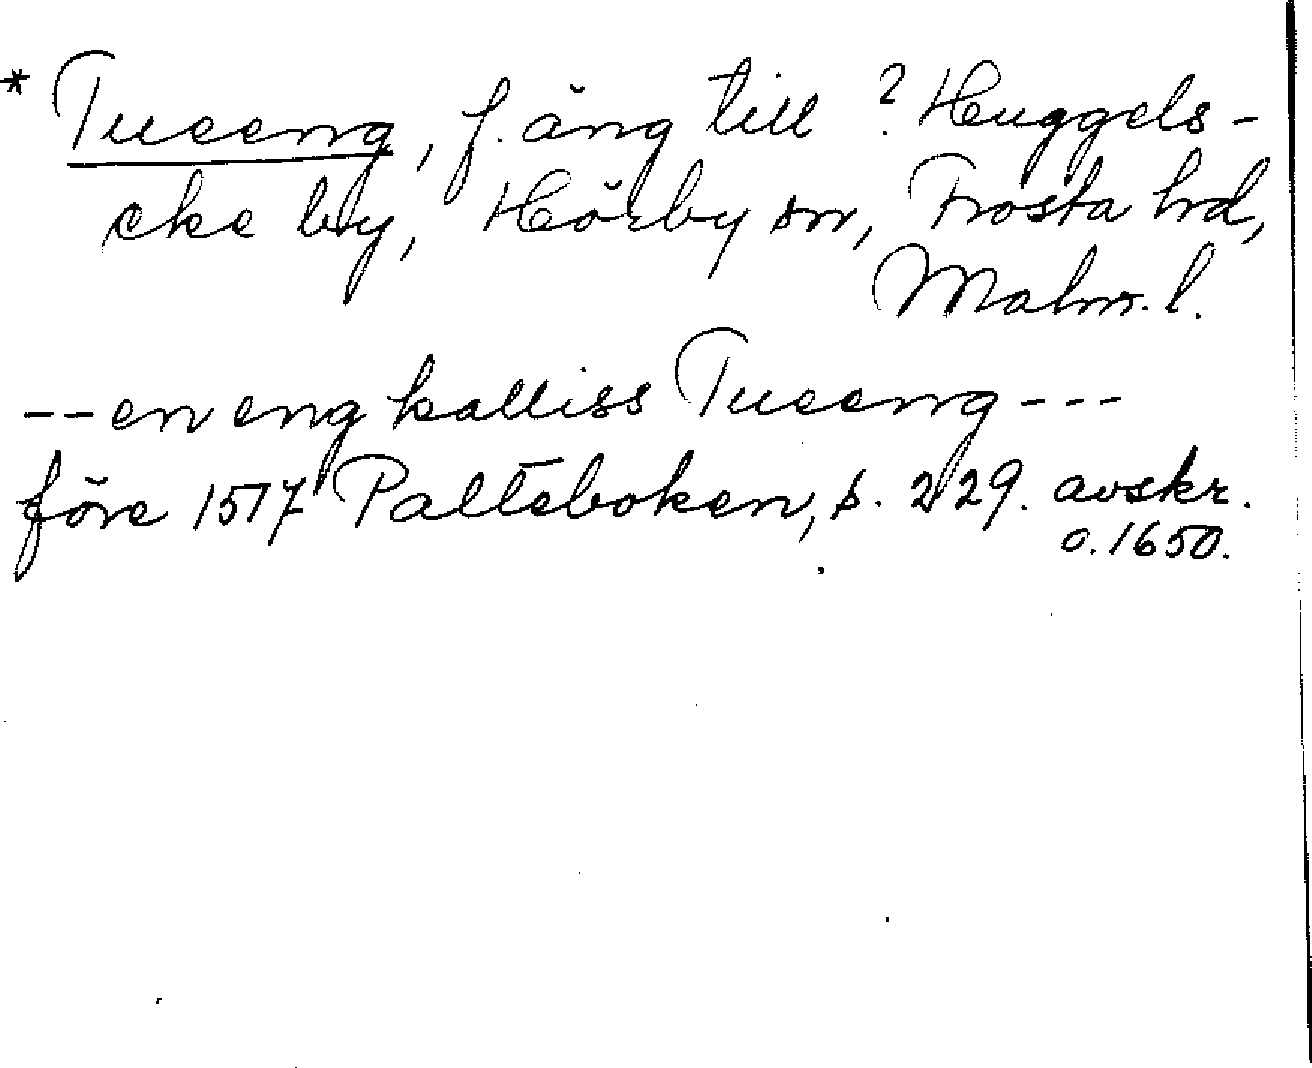 * Tueeng, f. äng till ? Huggels-
eke by, Hörby sn, Frosta hd,
Malm. l.
-- en eng kalliss Tueeng ---
före 1517 Palteboken, s. 229. avskr.
o. 1650.